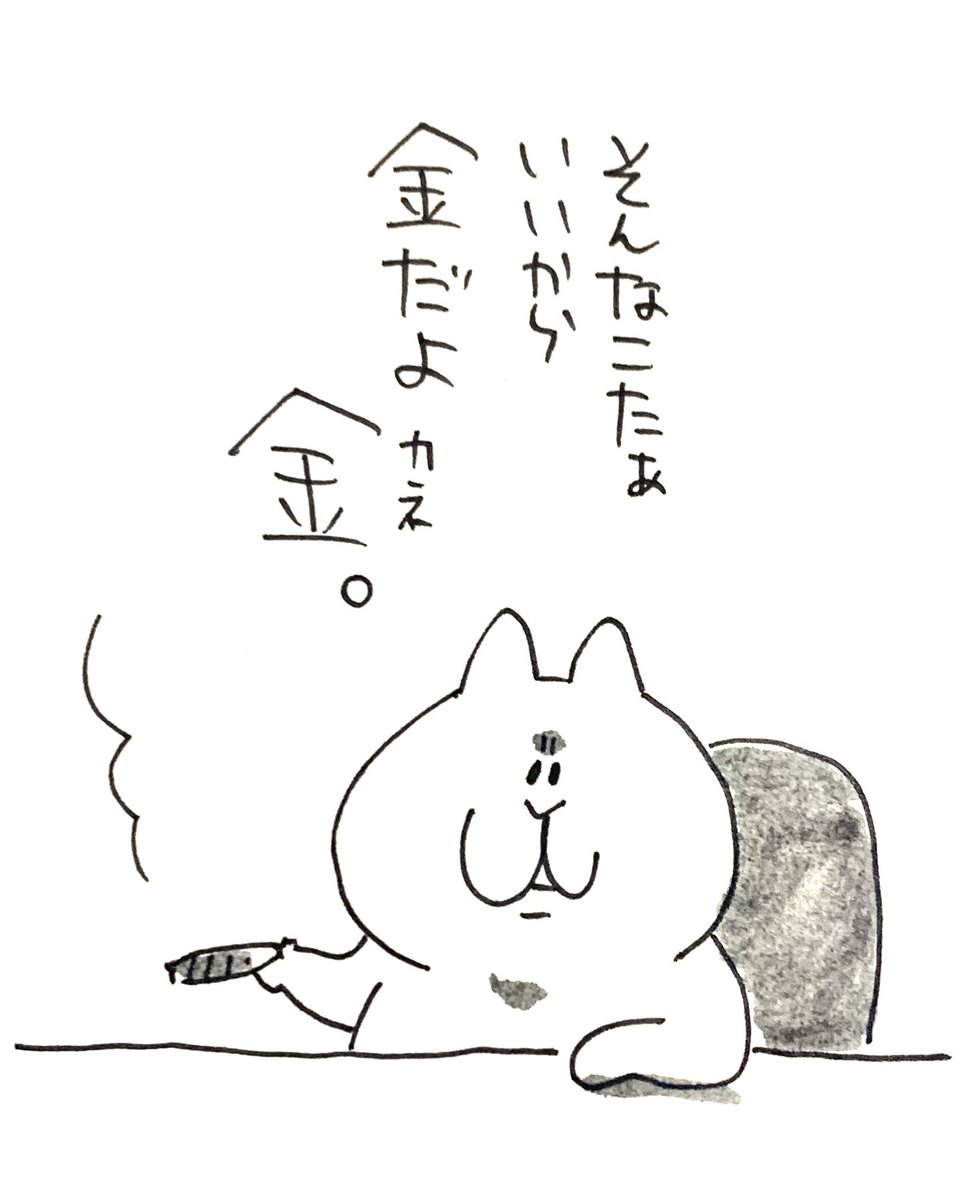 そんなこたぁ
いいから
金だよ カネ
金。